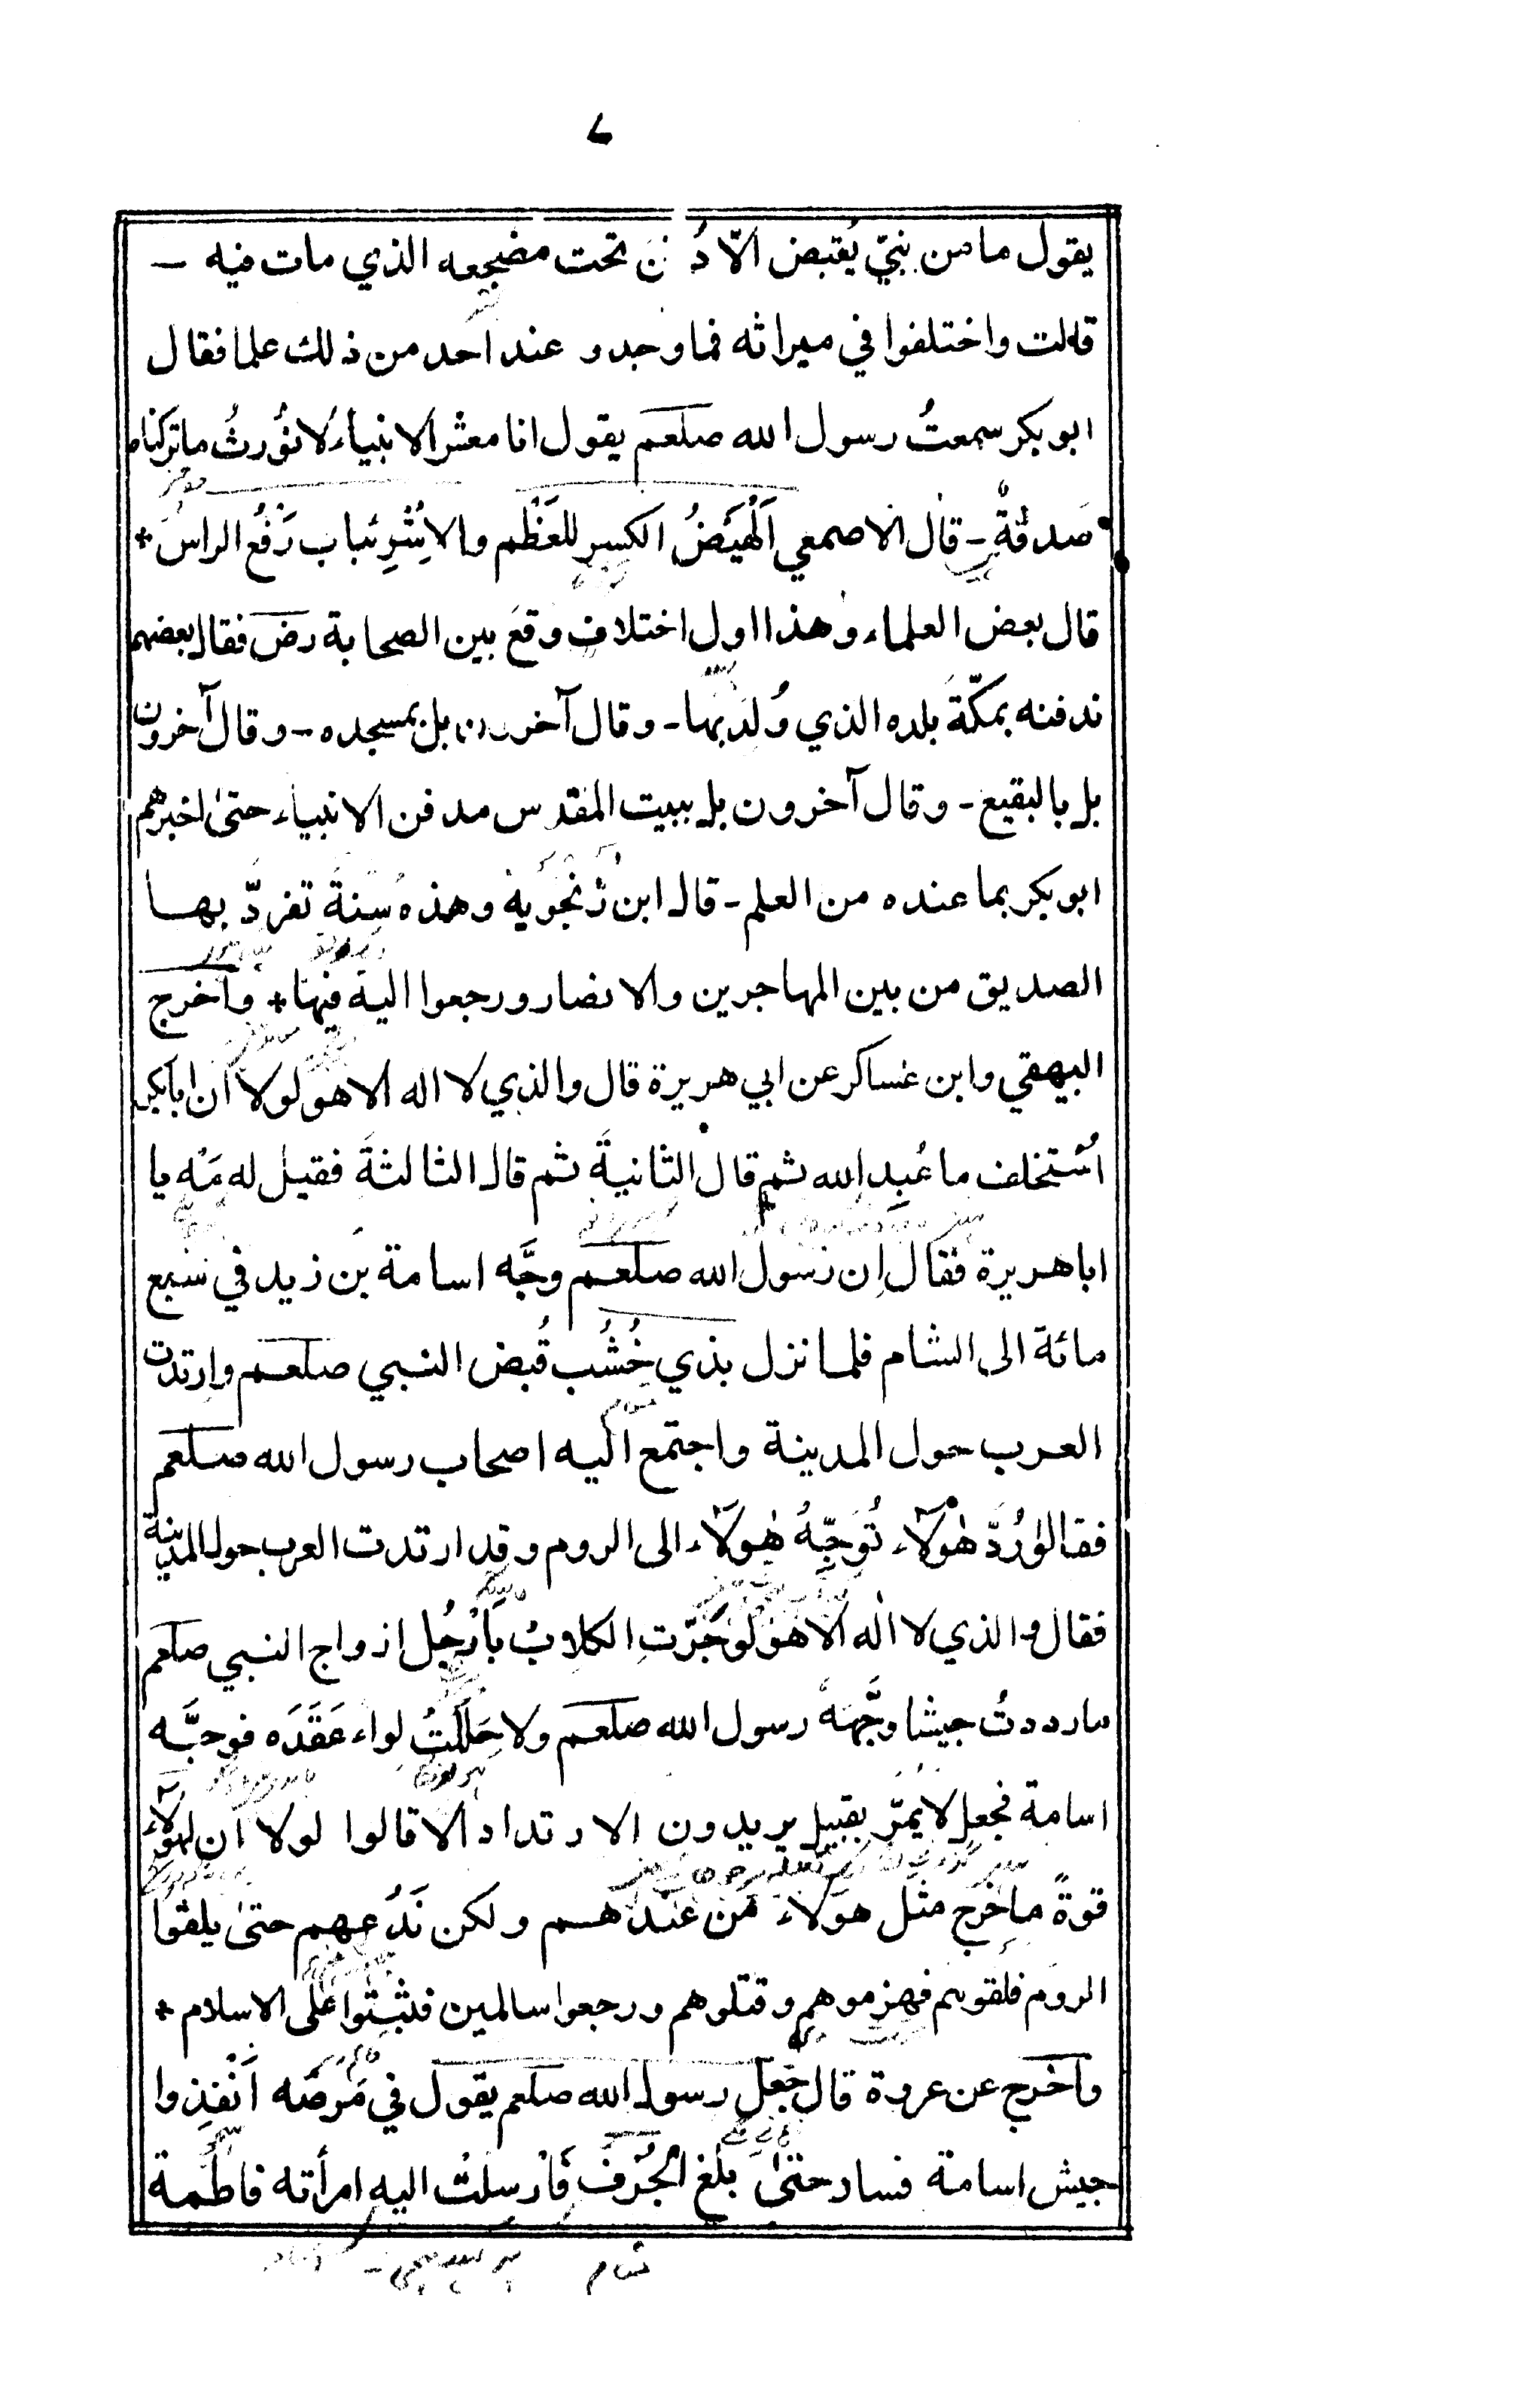 يقول ما من نبيّ يُقبض الّا دُفن تحت مضجعه الذي مات فيه -
قالت واختلفوا في ميراثه فما وجدو عند احد من ذلك علما فقال
ابو بكر سمعتُ رسول الله صلعم يقول انا معشر الانبياء لا نُورثُ ما تركناه
صَدقةٌ - قال الاصمعي اَلْهَيضُ الكسر للعَظْم والاِشْرِئباب رَفْعُ الراس *
قال بعض العلماء وهذا اول اختلاف وقع بين الصحابة رض فقال بعضهم
ندفنه بمكّةَ بلده الذي وُلد بها - وقال آخرون بل بمسجده - وقال آخرون
بل بالبقيع - وقال آخرون بل ببيت المقدس مدفن الانبياء حتىٰ اخبرهم
ابو بكر بما عنده من العلم - قال ابن زَنْجُويه وهذه سنةٌ تفردّ بها
الصديق من بين المهاجرين والانصار ورجعوا اليه فيها * واخرج
البيهقي وابن عساكر عن ابي هريرة قال والذي لا اله الا هو لولا ان ابابكر
اُستخلف ما عُبِد الله ثم قال الثانيةَ ثم قال الثالثةَ فقيل له مَه يا
ابا هريرة فقال اِن رسول الله صلعم وجَّه اسامة بن زيد في سبع
مائة الى الشام فلما نزل بذي خُشُب قُبض النبي صلعم وارتدت
العرب حول المدينة واجتمع اليه اصحاب رسول الله صلعم
فقالوا رُدّ هٰؤلآء تُوَجِّهُ هٰؤلآء الى الروم وقد ارتدت العرب حول المدينة
فقال والذي لا اله الا هو لو جَرّتِ الكلابُ بِاَرْجُل ازواج النبي صلعم
ما رددتُ جيشا وجَّهَهُ رسول الله صلعم ولا حَلَلْتُ لواء عَقَدَه فوجَّه
اسامة فجعل لا يمرّ بقبيل يريدون الارتداد الا قالوا لولا ان لهؤلآء
قوةً ما خرج مثل هؤلاء من عندهم ولكن نَدَعهم حتىٰ يلقوا
الروم فلقوهم فهزموهم وقتلوهم ورجعوا سالمين فثبتوا على الاسلام *
واخرج عن عروة قال جعل رسول الله صلعم يقول في مرضه اَنْفِذوا
جيش اسامة فسار حتىٰ بلغ الجُرف فاَرسلتْ اليه امرأته فاطمة